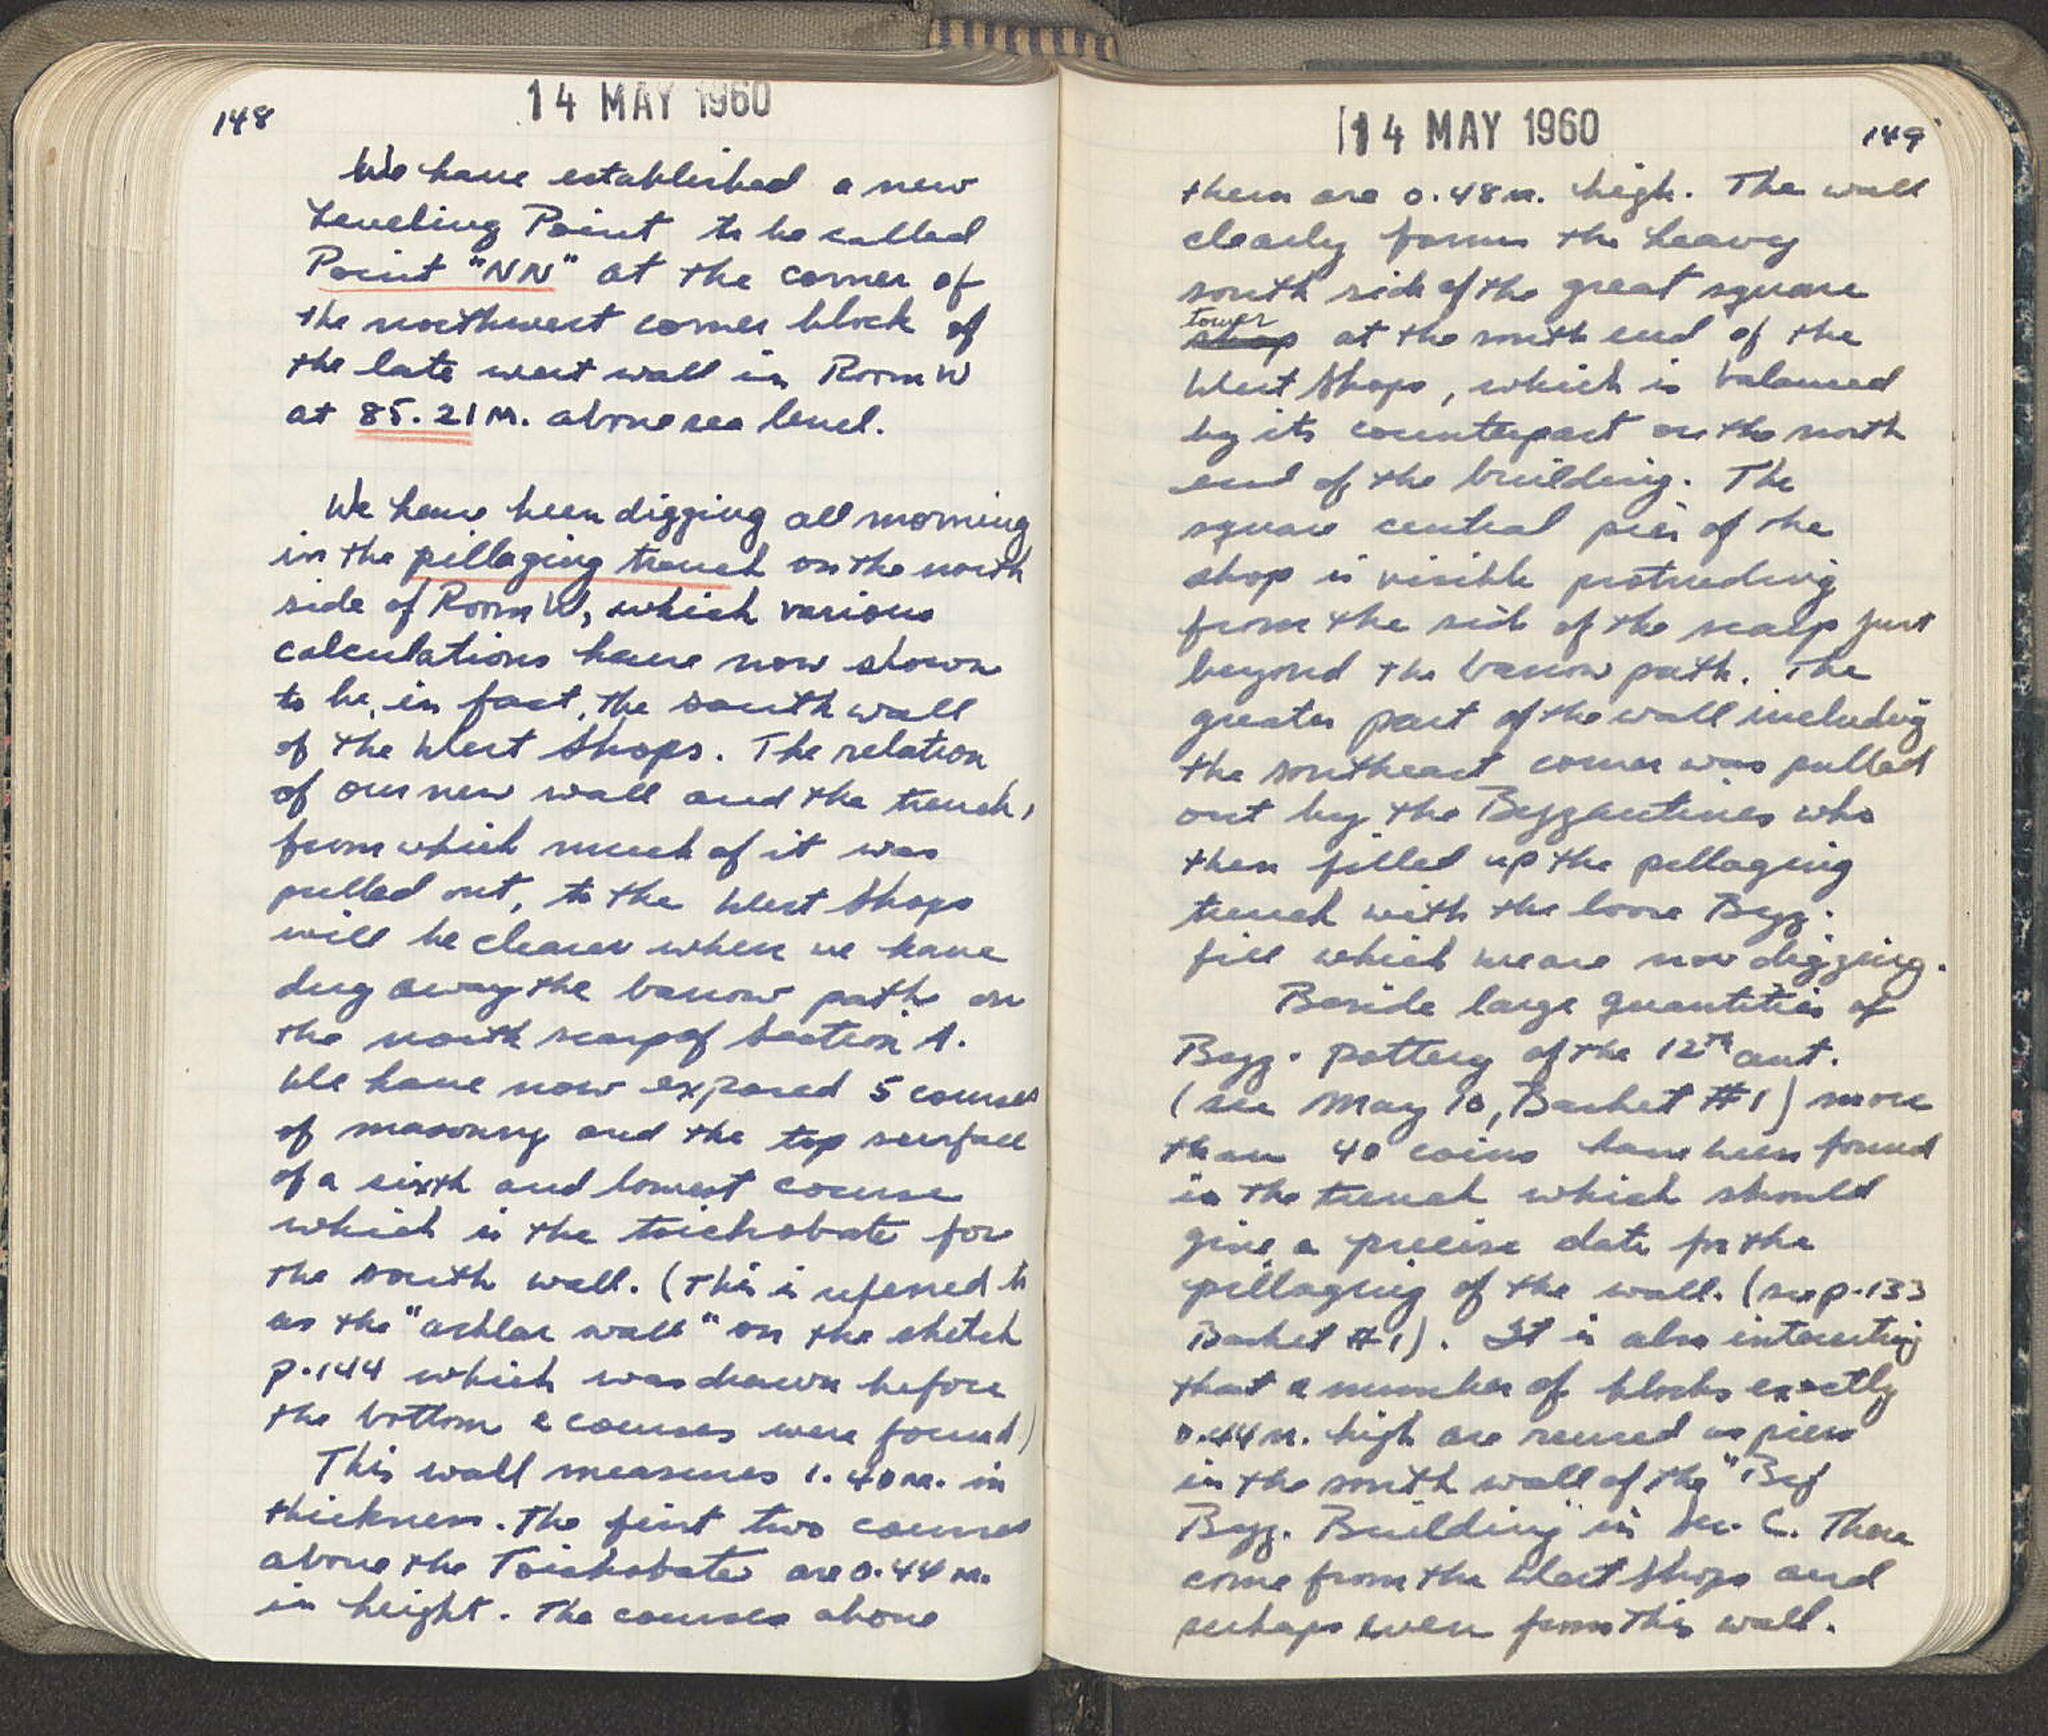 148
14 MAY 1960
We have established a new
Leveling Point to be called
Point "NN" at the corner of
the northwest corner block of
the late west wall in Room W
at 85.21 M. above sea level.
We have been digging all morning
in the pillaging trench on the north
side of Room W, which various
calculations have now shown
to be, in fact, the south wall
of the West Shops. The relation
of our new wall and the trench,
from which much of it was
pulled out, to the West Shops
will be clearer when we have
dug away the barrow path on
the north scarp of Section A.
We have now exposed 5 courses
of masonry and the top surface
of a sixth and lowest course
which is the toichobate for
the south wall. (This is referred to
as the "ashlar wall" on the sketch
p.144 which was drawn before
the bottom 2 courses were found)
This wall measures 1.40 m. in
thickness. The first two courses
above the Toichobate are 0.44 m.
in height. The courses above
14 MAY 1960
149
them are 0.48 m. high. The wall
clearly forms the heavy
south side of the great square
tower
shop at the south end of the
West Shops, which is balanced
by its counterpart on the north
end of the building. The
square central pier of the
shop is visible protruding
from the side of the scarp just
beyond the barrow path. The
greater part of the wall including
the southeast corner was pulled
out by the Byzantines who
then filled up the pillaging
trench with the loose Byz.
fill which we are now digging.
Beside large quantities of
Byz. pottery of the 12th cent.
(see May 10, Basket #1) more
than 40 coins have been found
in the trench which should
give a precise date for the
pillaging of the wall. (see p.133
Basket #1). It is also interesting
that a number of blocks exactly
0.44 m. high are reused as piers
in the south wall of the "Big
Byz. Building" in Sec. C. These
come from the West Shops and
perhaps even from this wall.